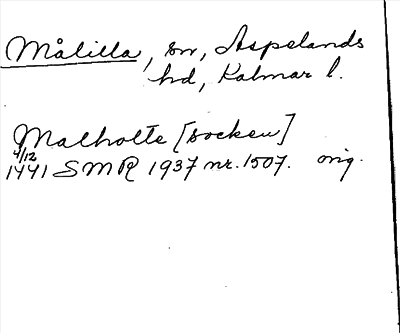 Målilla, sn, Aspelands
hd, Kalmar l.
Malholte [socken]
4/12
1441 SMR 1937 nr. 1507. orig.